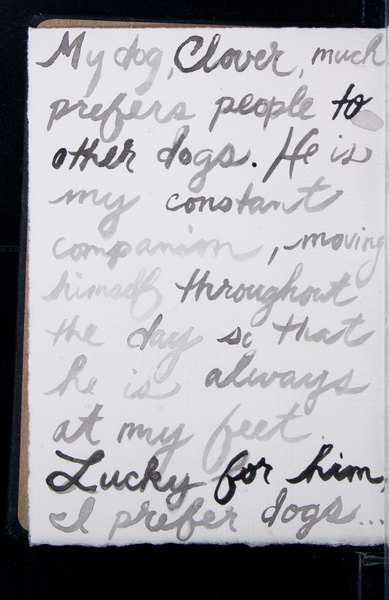 My dog, Clover, much
prefers people to
other dogs. He is
my constant
companion, moving
himself throughout
the day so that
he is always
at my feet.
Lucky for him,
I prefer dogs...